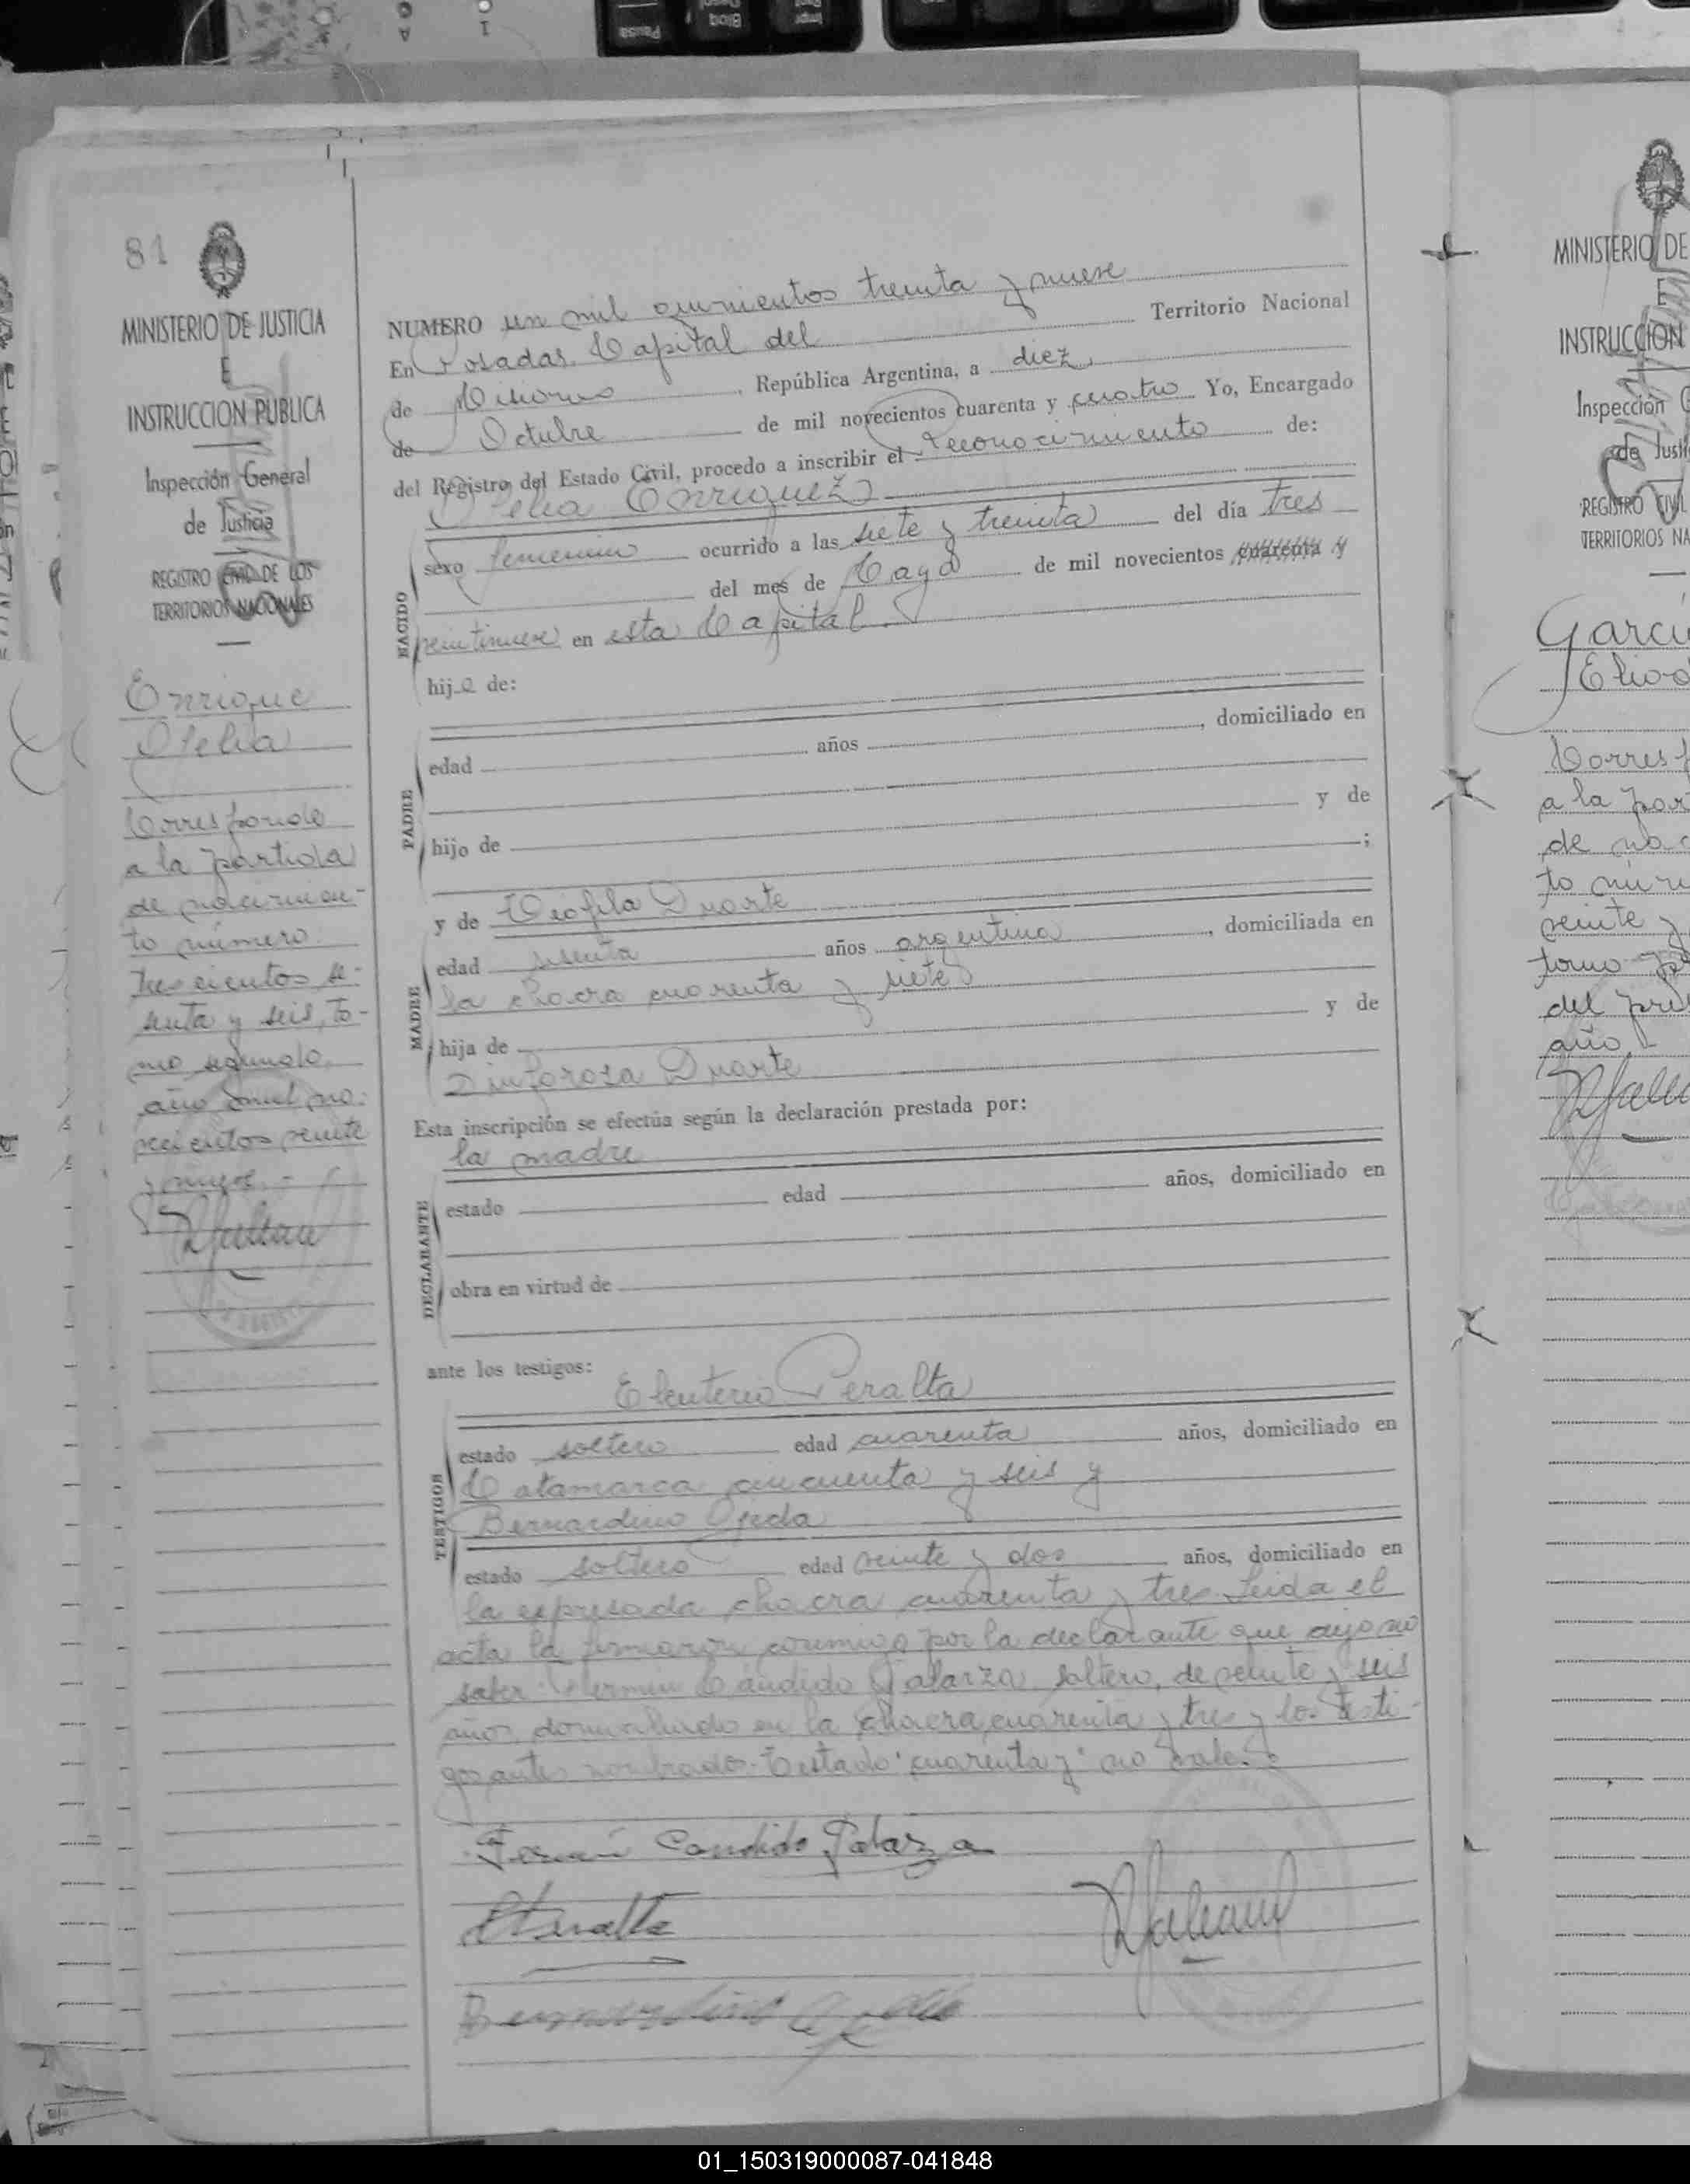 81
MINISTERIO DE JUSTICIA
E
INSTRUCCION PUBLICA
Inspección General
de Justicia
REGISTRO CIVIL DE LOS
TERRITORIOS NACIONALES
Enrique
Ofelia
Corresponde
a la partida
de nacimien-
to número
trescientos se-
senta y seis, to-
mo segundo
año mil no-
vecientos veinte
y nueve. -
NUMERO un mil quinientos treinta y nueve
En Posadas, Capital del Territorio Nacional
de Misiones, República Argentina, a diez
de Octubre de mil novecientos cuarenta y cuatro Yo, Encargado
del Registro del Estado Civil, procedo a inscribir el reconocimiento de:
Ofelia Enriquez
sexo femenino ocurrido a las siete y treinta del día tres
del mes de Mayo de mil novecientos cuarenta y
veintinueve en esta Capital.
NACIDO
hija de:
edad años , domiciliado en
PADRE
hijo de y de
;
y de Teofila Duarte
edad años argentina, domiciliada en
la chacra cuarenta y siete
MADRE
hija de y de
Sinforosa Duarte
Esta inscripción se efectúa según la declaración prestada por:
la madre
estado edad años, domiciliado en
DECLARANTE
obra en virtud de
ante los testigos:
Eleuterio Peralta
estado soltero edad cuarenta años, domiciliado en
Catamarca cincuenta y seis y
TESTIGOS
Bernardino Ojeda
estado soltero edad veinte y dos años, domiciliado en
la expresada chacra cuarenta y tres. Leida el
acta la firmaron conmigo por la declarante que dijo no
saber Fermin Cándido Galarza, soltero, de veinte y seis
años, domiciliado en la chacra cuarenta y tres y los testi-
gos antes nombrados. Testado "cuarenta y" no vale.
Fermín Candido Galarza
EPeralta
Bernardino Ojeda
MINISTERIO DE
E
INSTRUCCION
Inspección G
de Justi
REGISTRO CIVIL
TERRITORIOS NA
Garcí
Corresp
a la par
de nac
to núme
veinte y
tomo
del
año
01_150319000087-041848